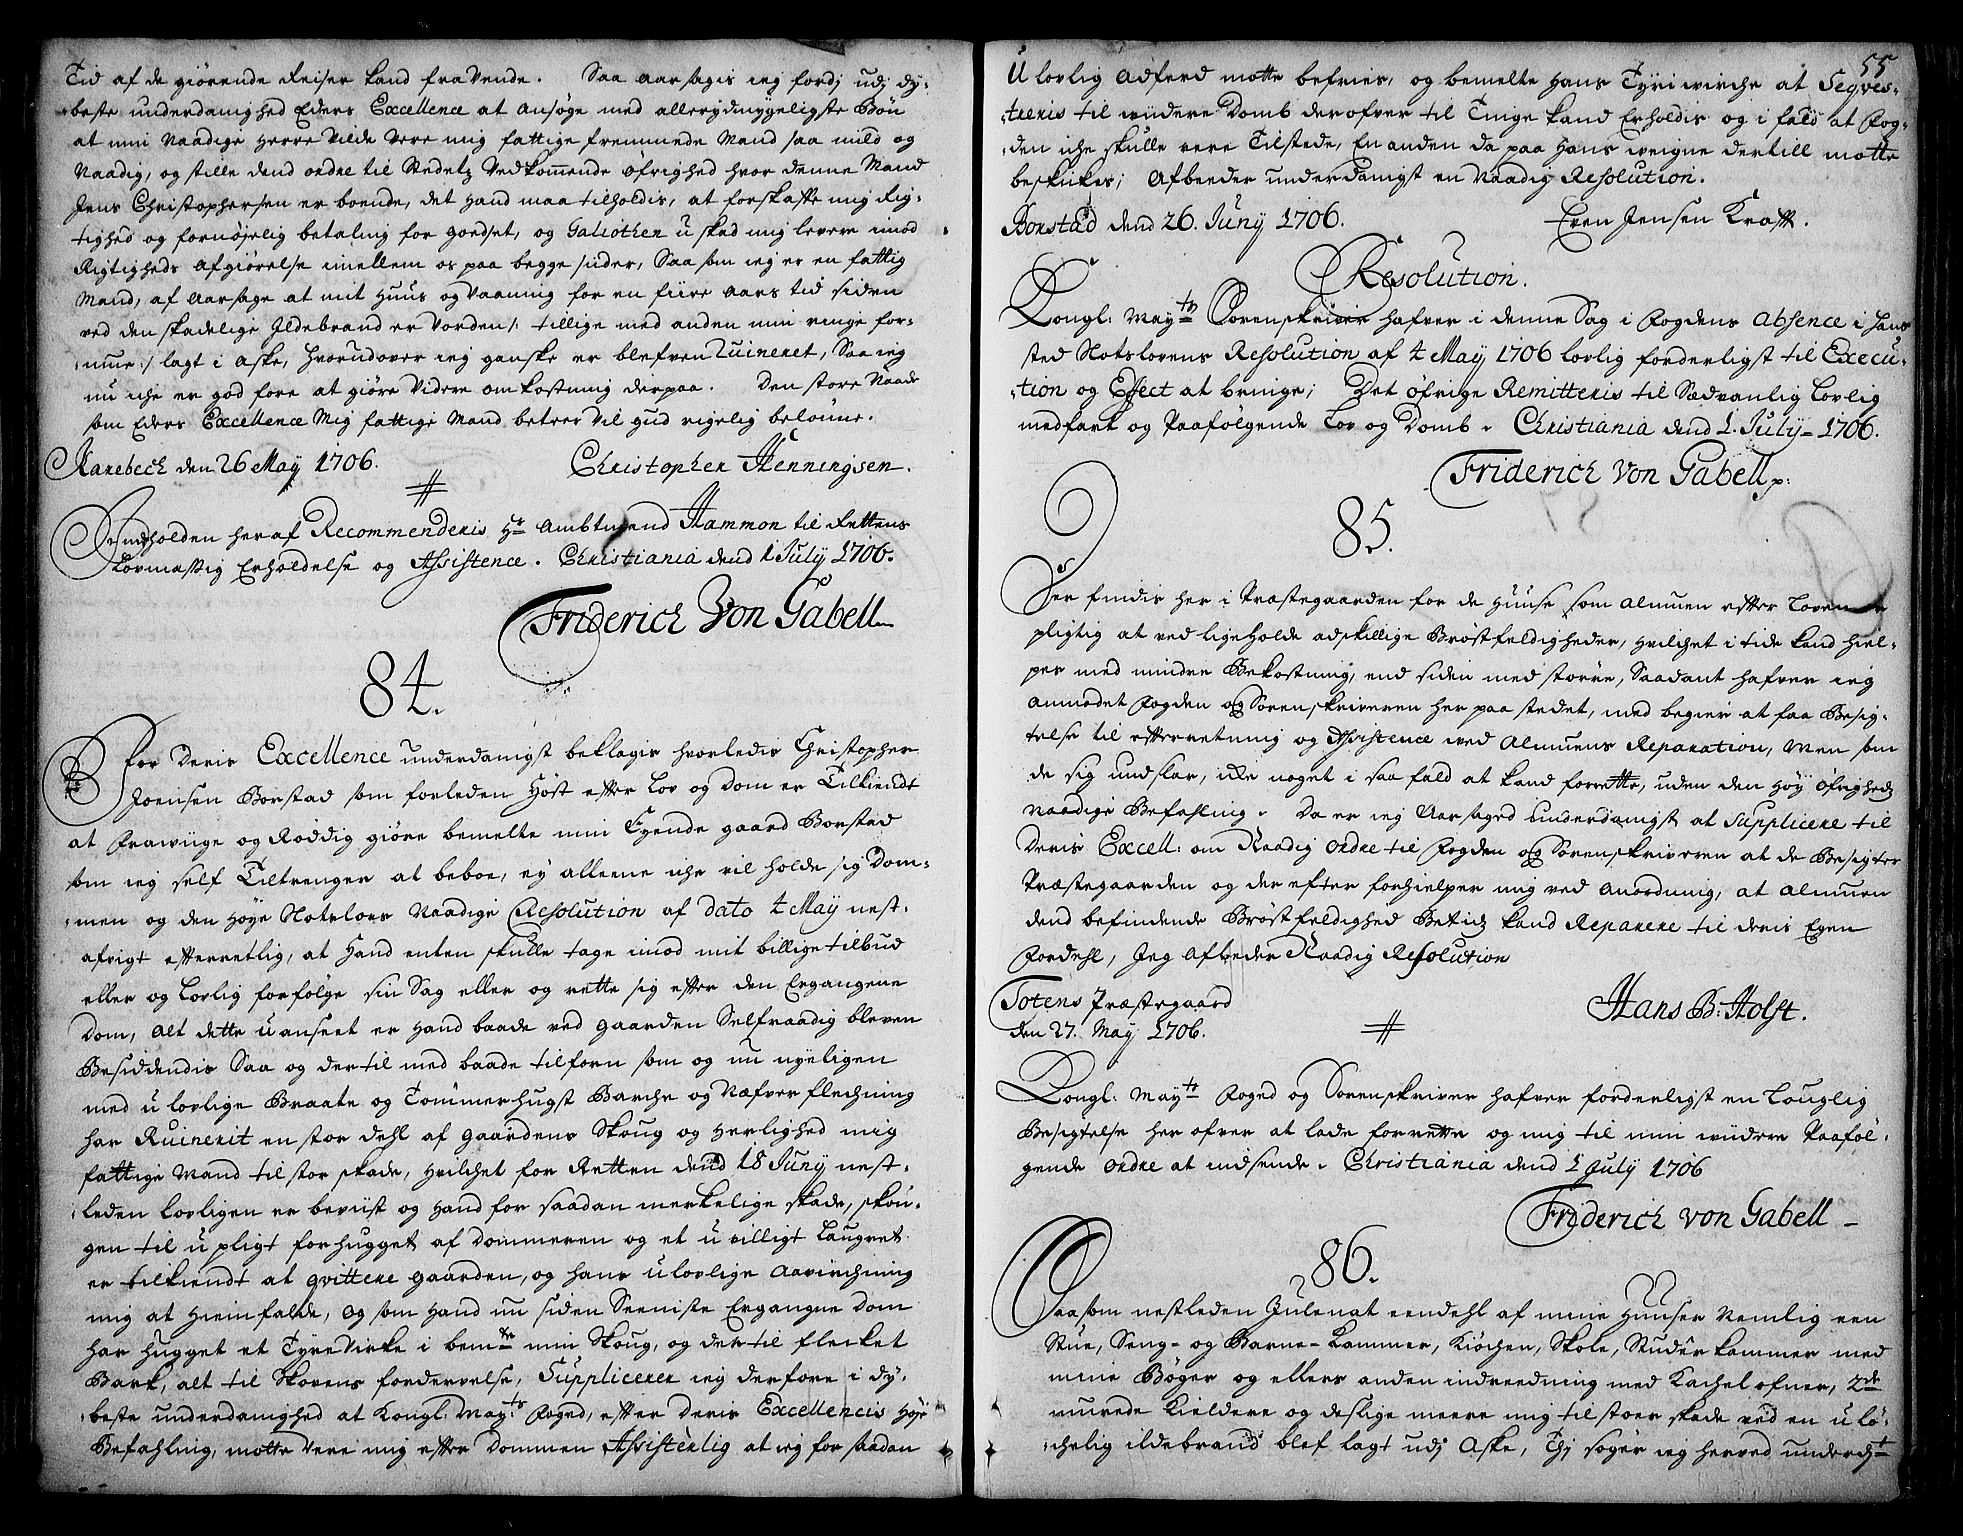 Tid af de giørende Reiser kand fraVende. Saa aarsagis ieg fordj udj dy-
beste underdanighed Eders Excellence at ansøge med allerydmygeligste Bøn
at min Naadige Herre Vilde Vere mig fattige fremmede Mand saa mild og
Naadig, og stille dend ordre til Stedetz Vedkommende Øfrighed hvor denne Mand
Jens Christophersen er boende, det Hand maa tilholdis, at forskaffe mig Rig-
tighed og fornøjelig betaling for goedset, og Galiothen u skad mig levere imod
Rigtigheds Afgiørelse imellem os paa begge sider, Saa som ieg er en fattig
Mand, af Aarsage at mit Huus og Vaaning for en fiire Aars tid siden
ved den skadelige Ildebrand er Vorden /: tillige med anden min ringe for-
mue :/ lagt i Aske, hvorudover ieg ganske er blefven Ruineret, Saa ieg
nu iche er god fore at giøre Videre omkostning derpaa. Den store Naade
som Eders Excellence Mig fattige Mand beteer Vil gud rigelig belønne.
Rarebech den 26 May 1706. Christopher Henningsen.
Indholden heraf Recommenderis Hr Ambtmand Hammon til Rettens
Lovmassig Erholdelse og Assistence. Christiania dend 1 July 1706.
Friderich Von Gabell
84.
For Deris Excellence underdanigst beklagis hvorledis Christopher
Joensen Borstad som forleden Høst efter Lov og Dom er Tilkiendt
at frawiige og Røddig giøre bemelte min Egende gaard Borstad
som ieg self Tiltrenger at beboe, ey alleene iche vil holde sig Dom-
men og den Høye Slotslovs Naadige Resolution af dato 4 May nest-
afvigt efterretlig, at Hand enten skulle tage imod mit billige tilbud
eller og Lovlig forfølge sin Sag eller og rette sig efter den Ergangene
Dom, Alt dette uanseet er Hand baade ved gaarden Selfraadig bleven
Besiddendis Saa og der til med baade tilforn som og nu nyeligen
med u lovlige Braate og Tømmerhugst Barche og Næfver flechning
har Ruinerit en stor dehl af gaardens Skoug og Herlighed mig
fattige Mand til stor skade, Hvilchet for Retten dend 18 Juny nest-
leden Lovligen er beviist og Hand for saadan merkelige skade, skou-
gen til u pligt forhugget af Dommeren og et u villigt Laugret
er tilkiendt at qvittere gaarden, og hans ulovlige Aavirchning
mig at Hiemfalde, og som Hand nu siden Seeniste Ergangne Dom
har Hugget et Tyre Virke i bemte min Skoug, og der til flecket
Bark, alt til Skovens fordervelse, Supplicerer ieg derfore i dy-
beste underdanighed at Kongl: Mayts Foged, efter Deris Excellencis Høye
Befahling, motte Vere mig efter Dommen Assistèrlig at ieg for saadan
55
Ulovlig adferd motte befries, og bemelte Hans Tyri wirche at Seqves-
treris til widere Domb derofver til Tinge kand Erholdis og i fald at Fog-
den iche skulle vere Tilstede, En anden da paa Hans weigne dertill motte
beskickes; Afbeeder underdanigst en Naadig Resolution.
Borstad dend 26. Juny 1706. Even Jensen Kraft.
Resolution.
Kongl: Mayts Sorenskriver hafver i denne Sag i Fogdens Absence i Hans
sted Slotslovens Resolution af 4 May 1706 lovlig forderligst til Execu-
tion og Effect at bringe; Det øfrige Remitteris til Sædvanlig Lovlig
medfart og Paafølgende Lov og Domb. Christiania dend 1. July 1706.
Friderich Von Gabell p:
85.
Her findis her i Præstegaarden for de Huuse som Almuen efter Loven er
pligtig at ved ligeholde adskillige Brøstfeldigheder, Hvilchet i tide kand hiel-
pes med mindre Bekostning, end siden med større, Saadant hafver ieg
Anmodet Fogden og Sorenskriveren her paa stedet, med begier at faa Besig-
telse til efterretning og Assistence ved Almuens Reparation, Men som
de sig undslar, icke noget i saa fald at kand forrette, uden den Høy Øfrigheds
Naadige Befahling. Da er ieg Aarsaged underdanigst at Supplicere til
Deris Excell: om Naadig Ordre til Fogden og Sorenskriveren at de Besigter
Præstegaarden og der efter forhielper mig ved Anordning, at Almuen
dend befindende Brøstfeldighed Betids kand Reparere til deris Egen
Fordehl, Jeg Afbeder Naadig Resolution
Totens Præstegaard Hans B: Holst.
den 27. May 1706.
Kongl: Mayts Foged og Sorenskriver hafver forderligst en Louglig
Besigtelse her ofver at lade forrette og mig til min widere Paaføl-
gende Ordre at indsende. Christiania dend 1 July 1706
Friderich von Gabell
86.
Saasom nestleden Julenat eendehl af mine Huuser Nemlig een
Stue, Seng- og Barne-Kammer, Kiøchen, Skole, Studer kammer med
mine Bøger og ellers anden indreedning med Kachelofner, 2de
murede Kieldere og deslige meere mig til stoer skade ved en u lø-
chelig ildebrand blef lagt udj Aske, Thj søger ieg herved underdt